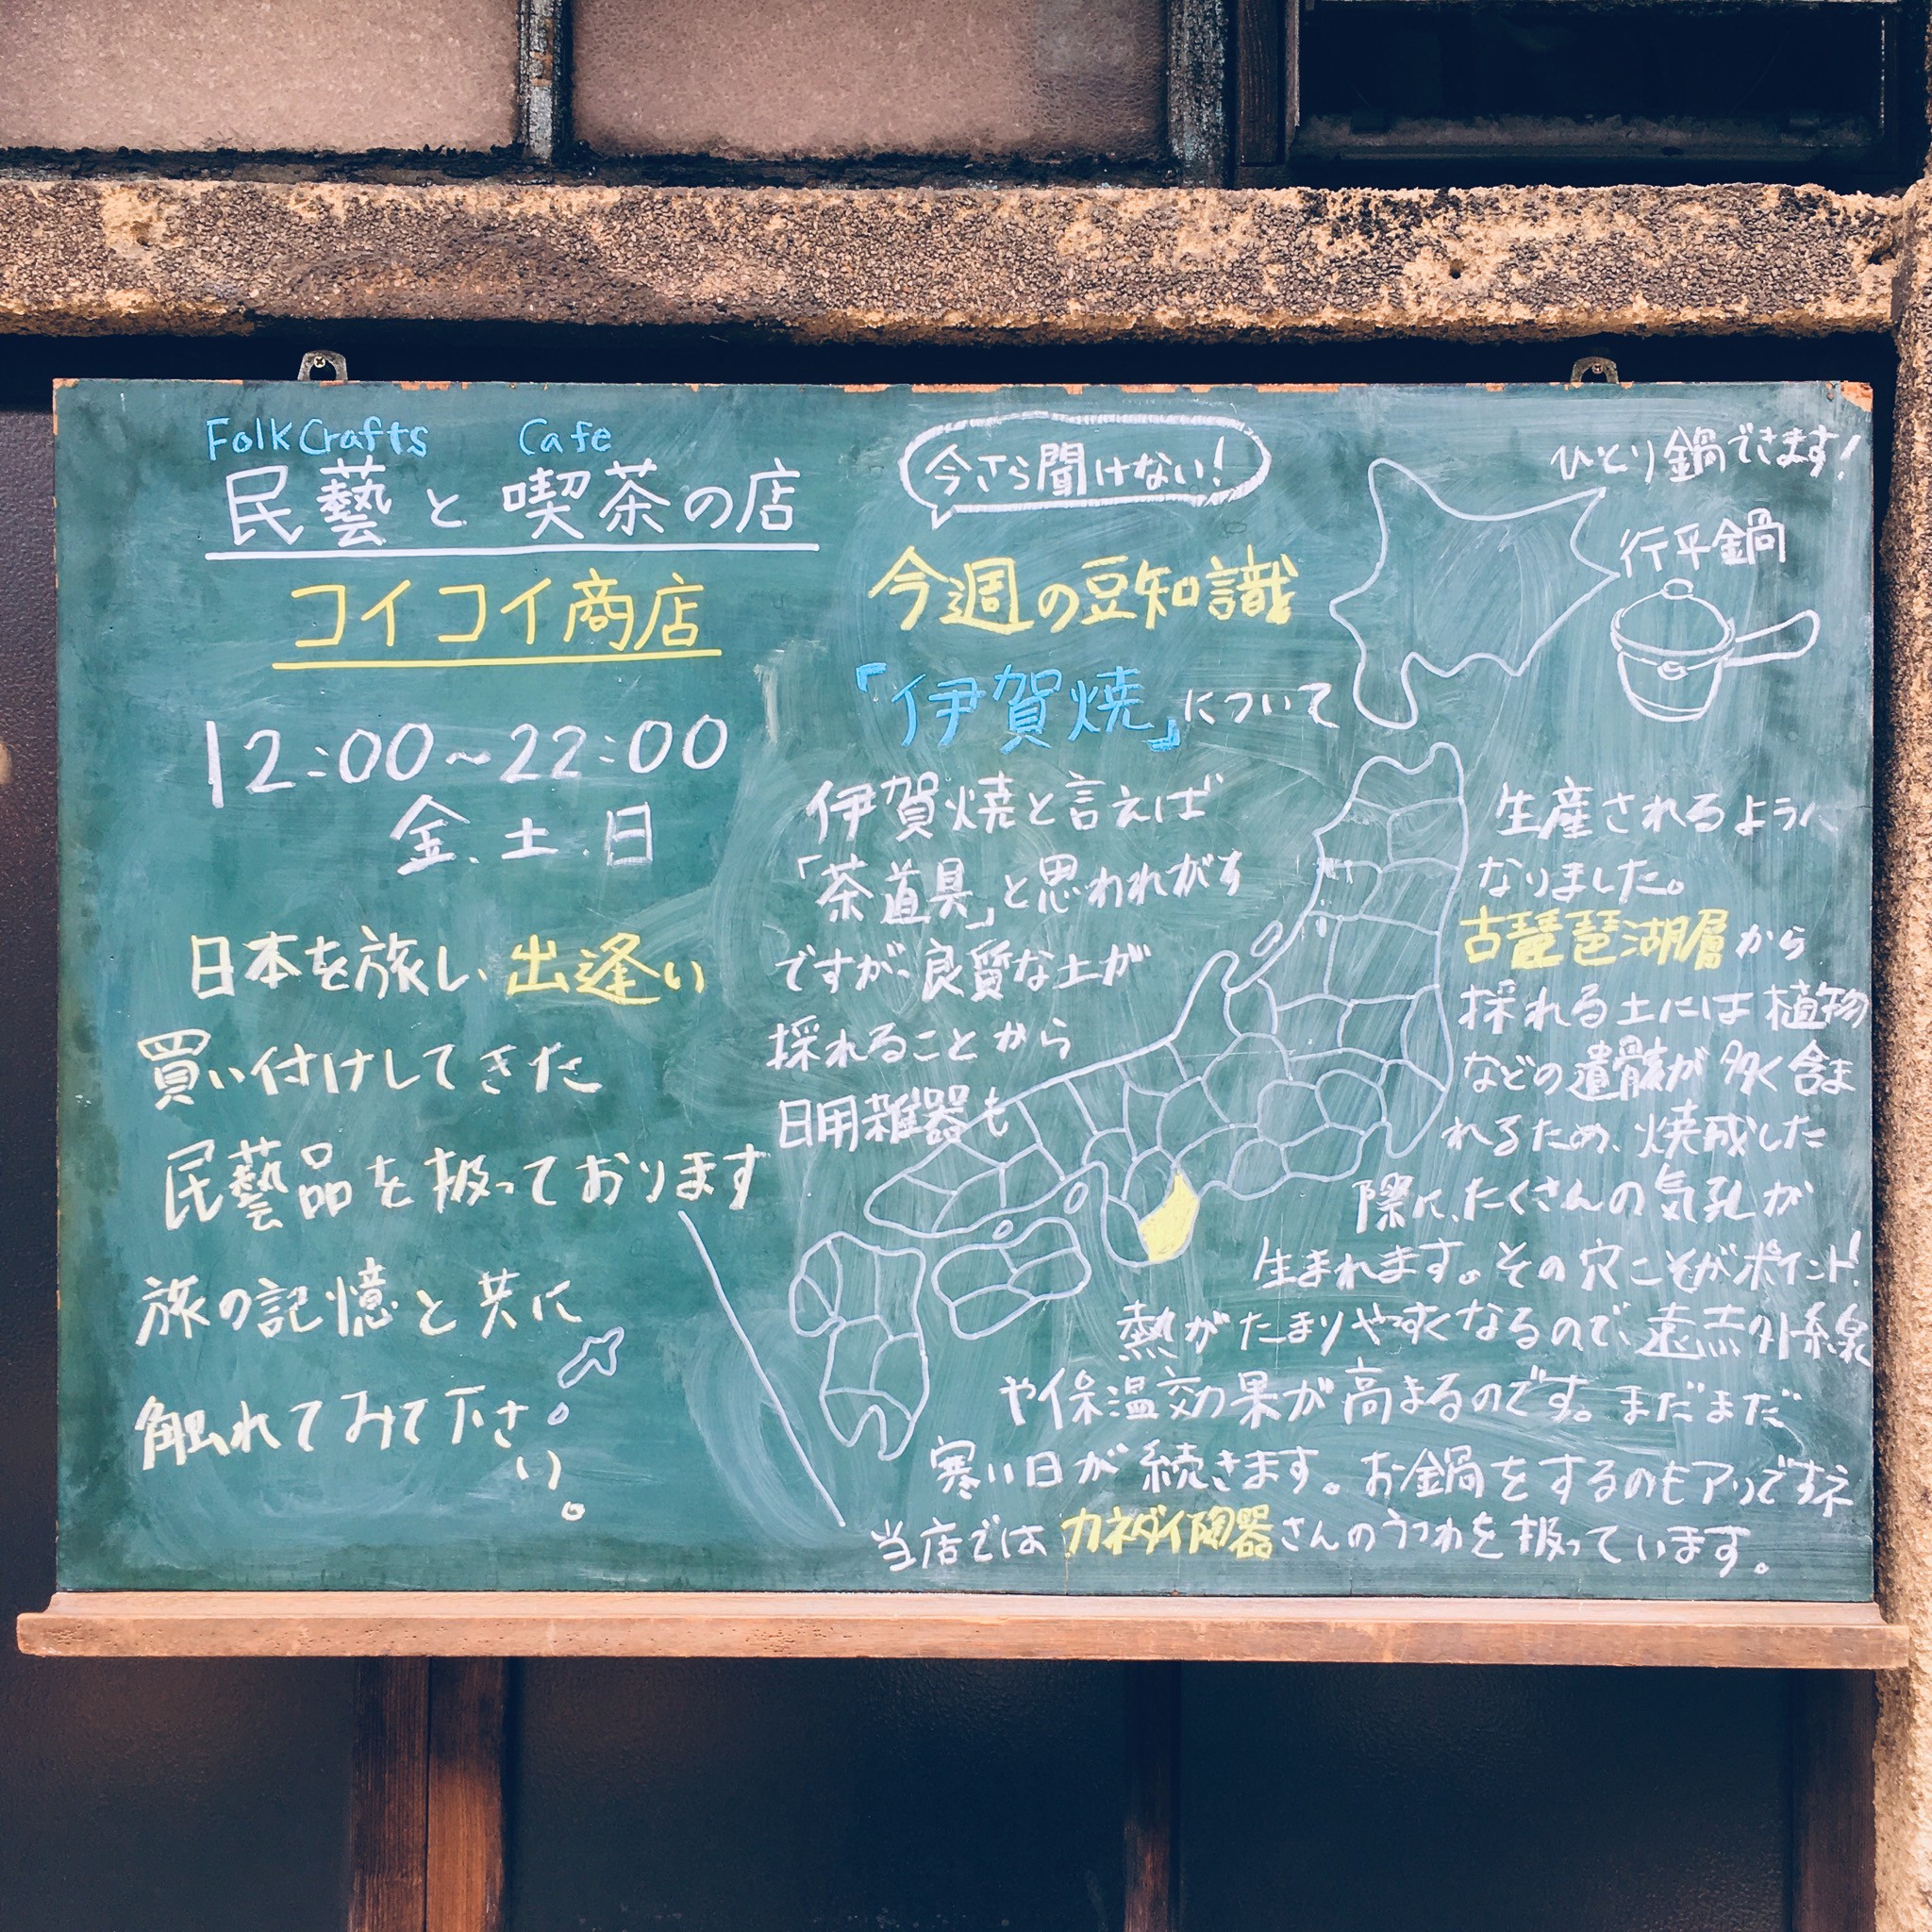 FolkCrafts Cafe
民藝と喫茶の店
コイコイ商店
12:00~22:00
金.土.日
日本を旅し、出逢い
買い付けしてきた
民藝品を扱っております
旅の記憶と共に
触れてみて下さい。
今さら聞けない!
今週の豆知識
『伊賀焼』について
伊賀焼と言えば
「茶道具」と思われがち
ですが、良質な土が
採れることから
日用雑器も
ひとり鍋できます!
行平鍋
生産されるように
なりました。
古琵琶湖層から
採れる土には植物
などの遺骸が多く含ま
れるため、焼成した
際に、たくさんの気孔が
生まれます。その穴こそがポイント!
熱がたまりやすくなるので、遠赤外線
や保温効果が高まるのです。まだまだ
寒い日が続きます。お鍋をするのもアリですネ
当店ではカネダイ陶器さんのうつわを扱っています。